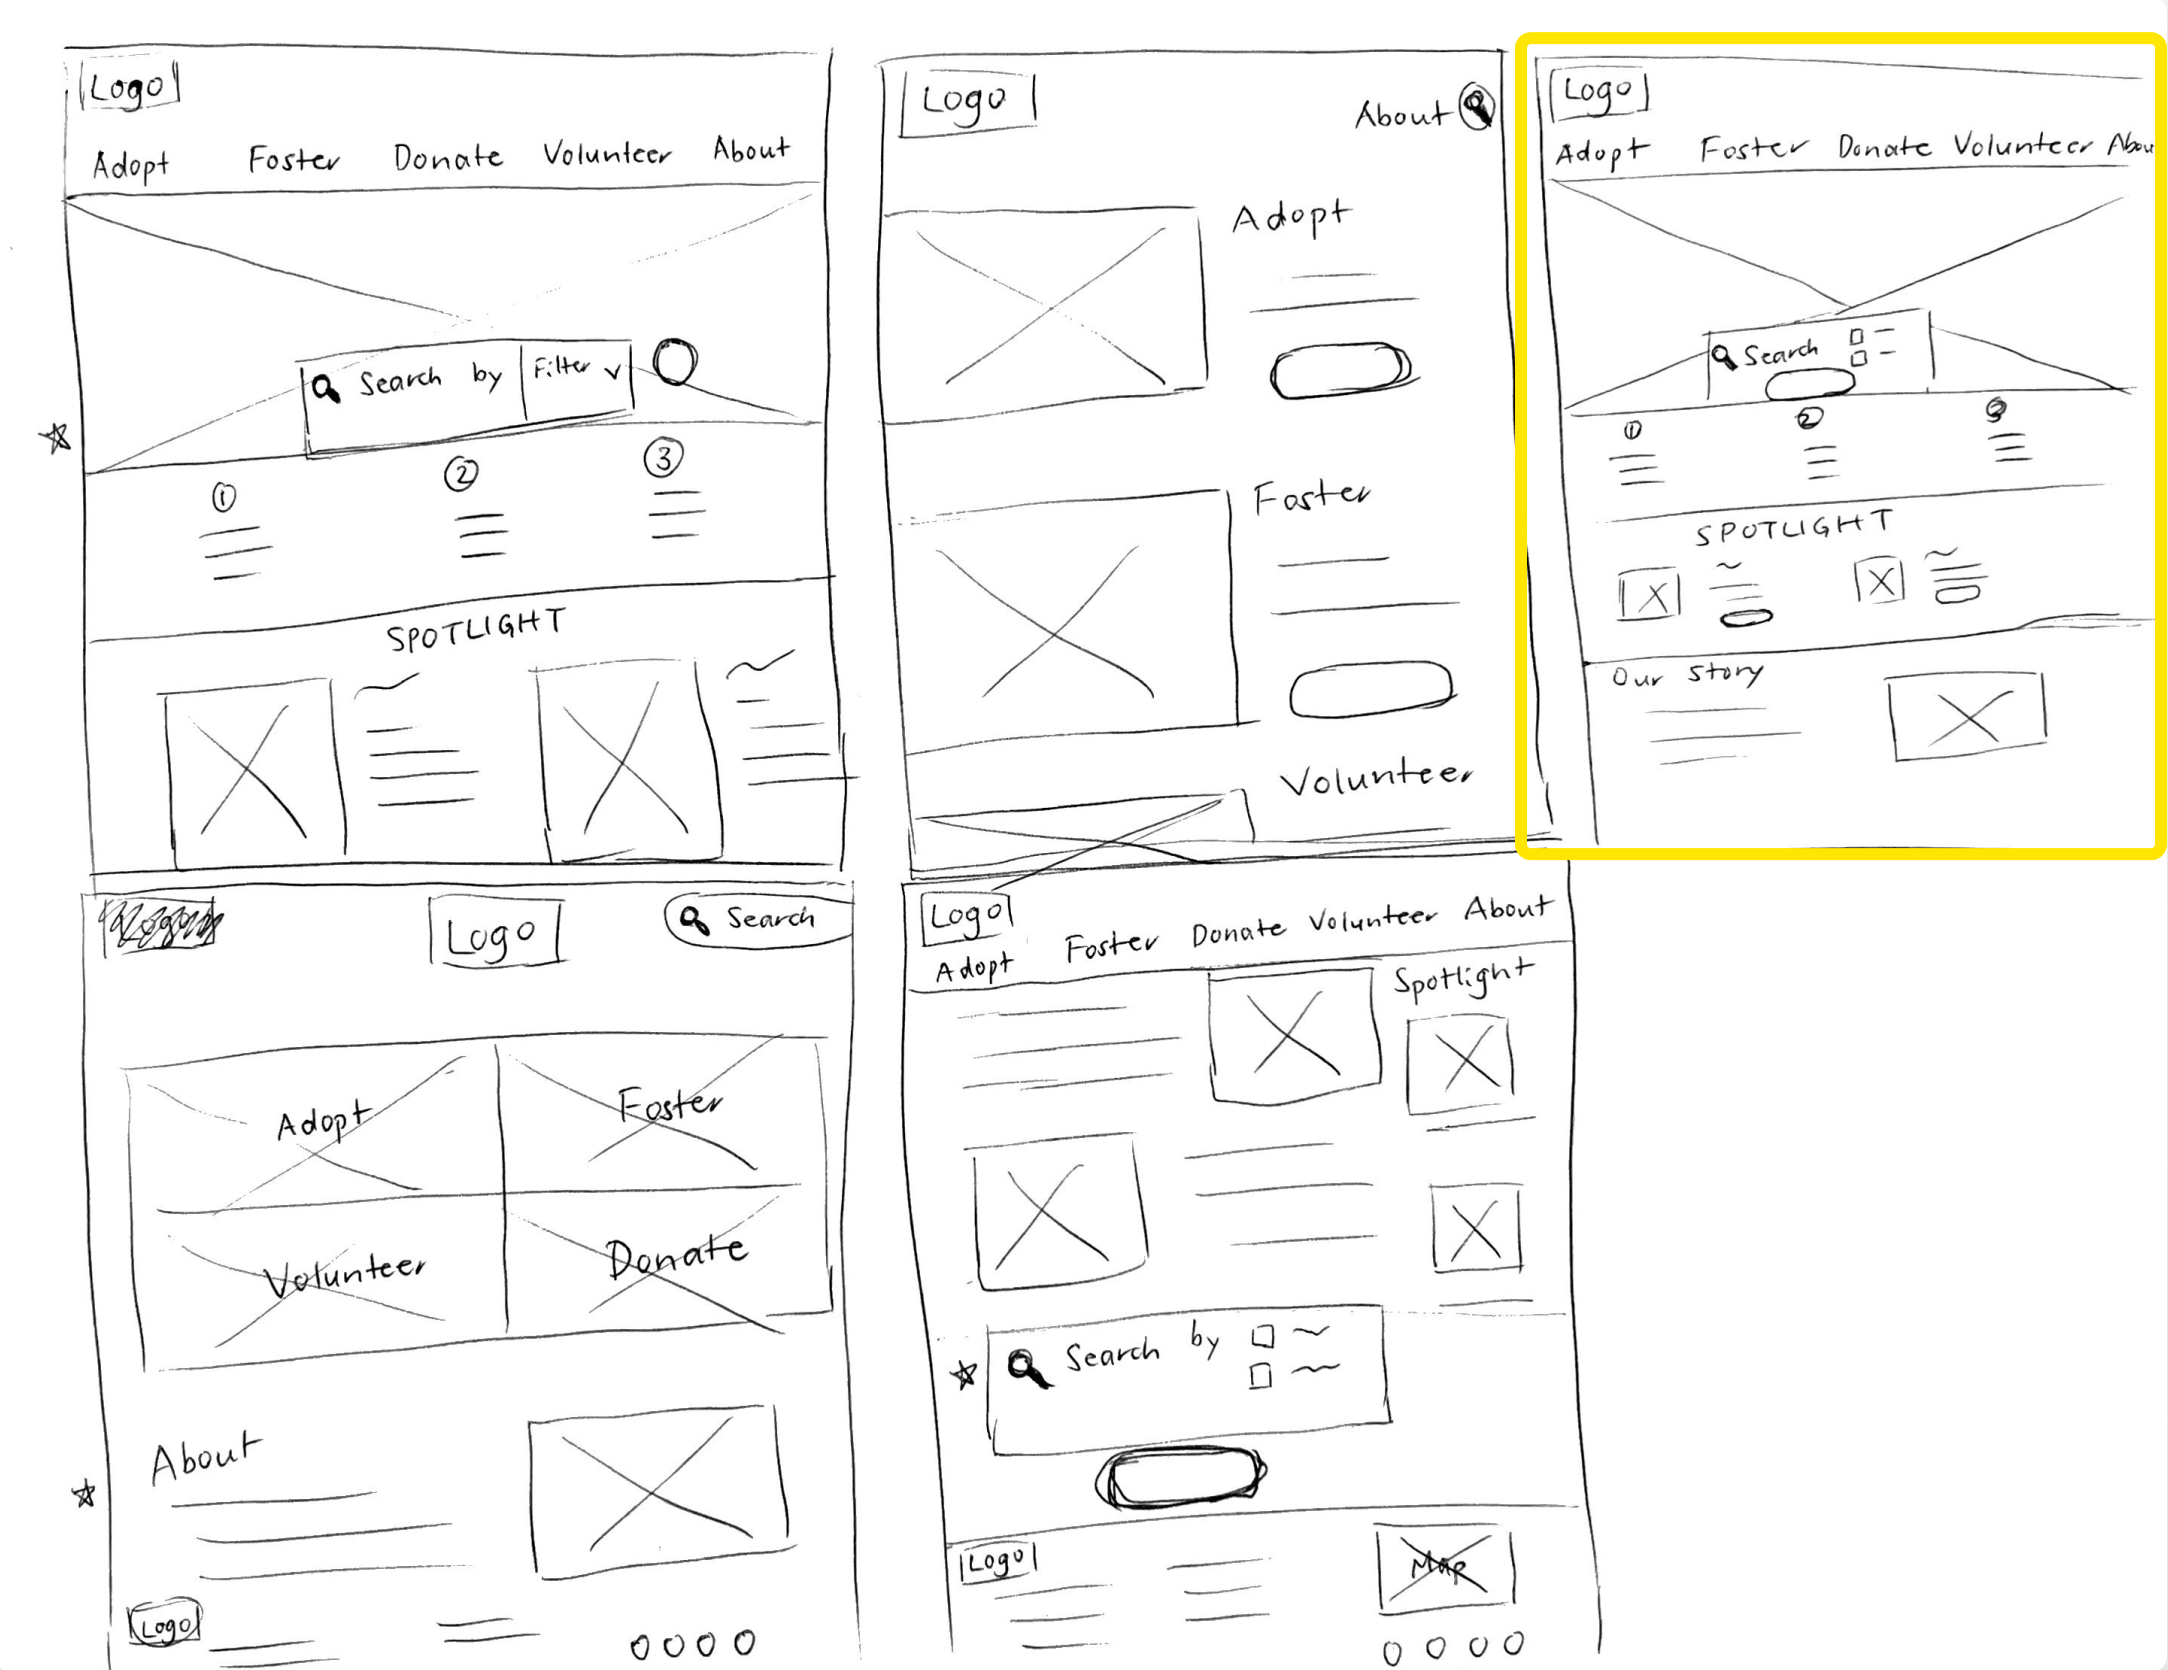 Logo
Adopt Foster Donate Volunteer About
Search by Filter
1 2 3
SPOTLIGHT
Logo
About
Adopt
Foster
Volunteer
Logo
Adopt Foster Donate Volunteer Abou
Search
1 2 3
SPOTLIGHT
Our Story
Logo
Search
Adopt
Foster
Volunteer
Donate
About
Logo
Logo
Adopt Foster Donate Volunteer About
Spotlight
Search by
Logo
Map